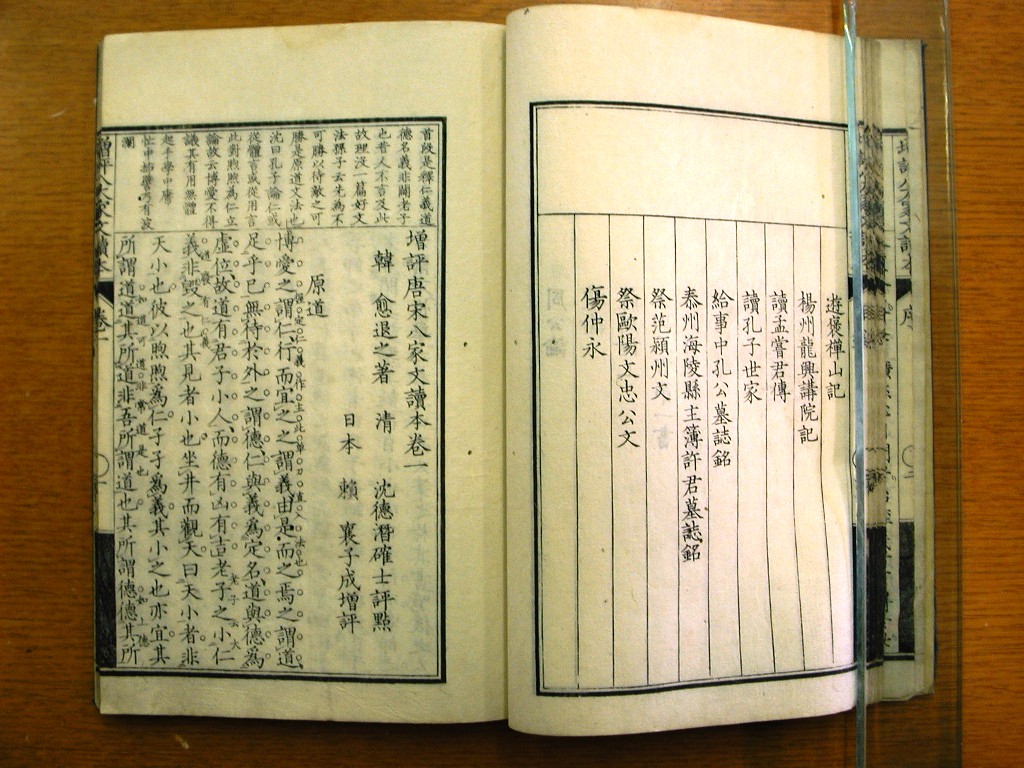 遊襃禪山記
楊州龍興講院記
讀孟嘗君傳
讀孔子世家
給事中孔公墓誌銘
泰州海陵縣主簿許君墓誌銘
祭范潁州文
祭歐陽文忠公文
傷仲永
首段是釋仁義道
德名義非闢老子
也昔人不言及此
故理没一篇好文
法孫子云先為不
可勝以待敵之可
勝是原道文法也
沈曰孔子論仁或
從體言或從用言
此對煦煦為仁立
論故云博愛不得
議其有用無體
起手學中庸
忙中插譬喻有波
瀾
增評唐宋八家文讀本卷一
韓 愈退之著 清 沈德潛確士評點
日本 賴 襄子成增評
原道
博愛之謂仁行而宜之之謂義由是而之焉之謂道
足乎已無待於外之謂德仁與義為定名道與德為
虛位故道有君子小人而德有凶有吉老子之小仁
義非毀之也其見者小也坐井而觀天曰天小者非
天小也彼以煦煦為仁孑孑為義其小之也亦宜其
所謂道道其所道非吾所謂道也其所謂德德其所
增評八大家文讀本
卷一